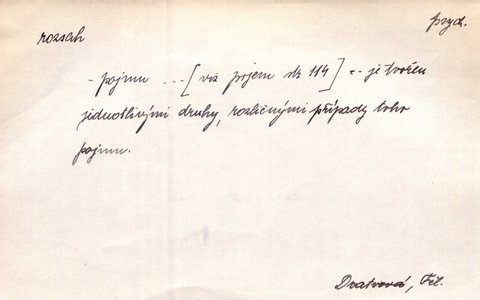 psych.
rozsah
- pojmu ... [viz pojem str 114] -- je tvořen
jednotlivými druhy, rozličnými případy toho
pojmu.
Dratvová, Fil.